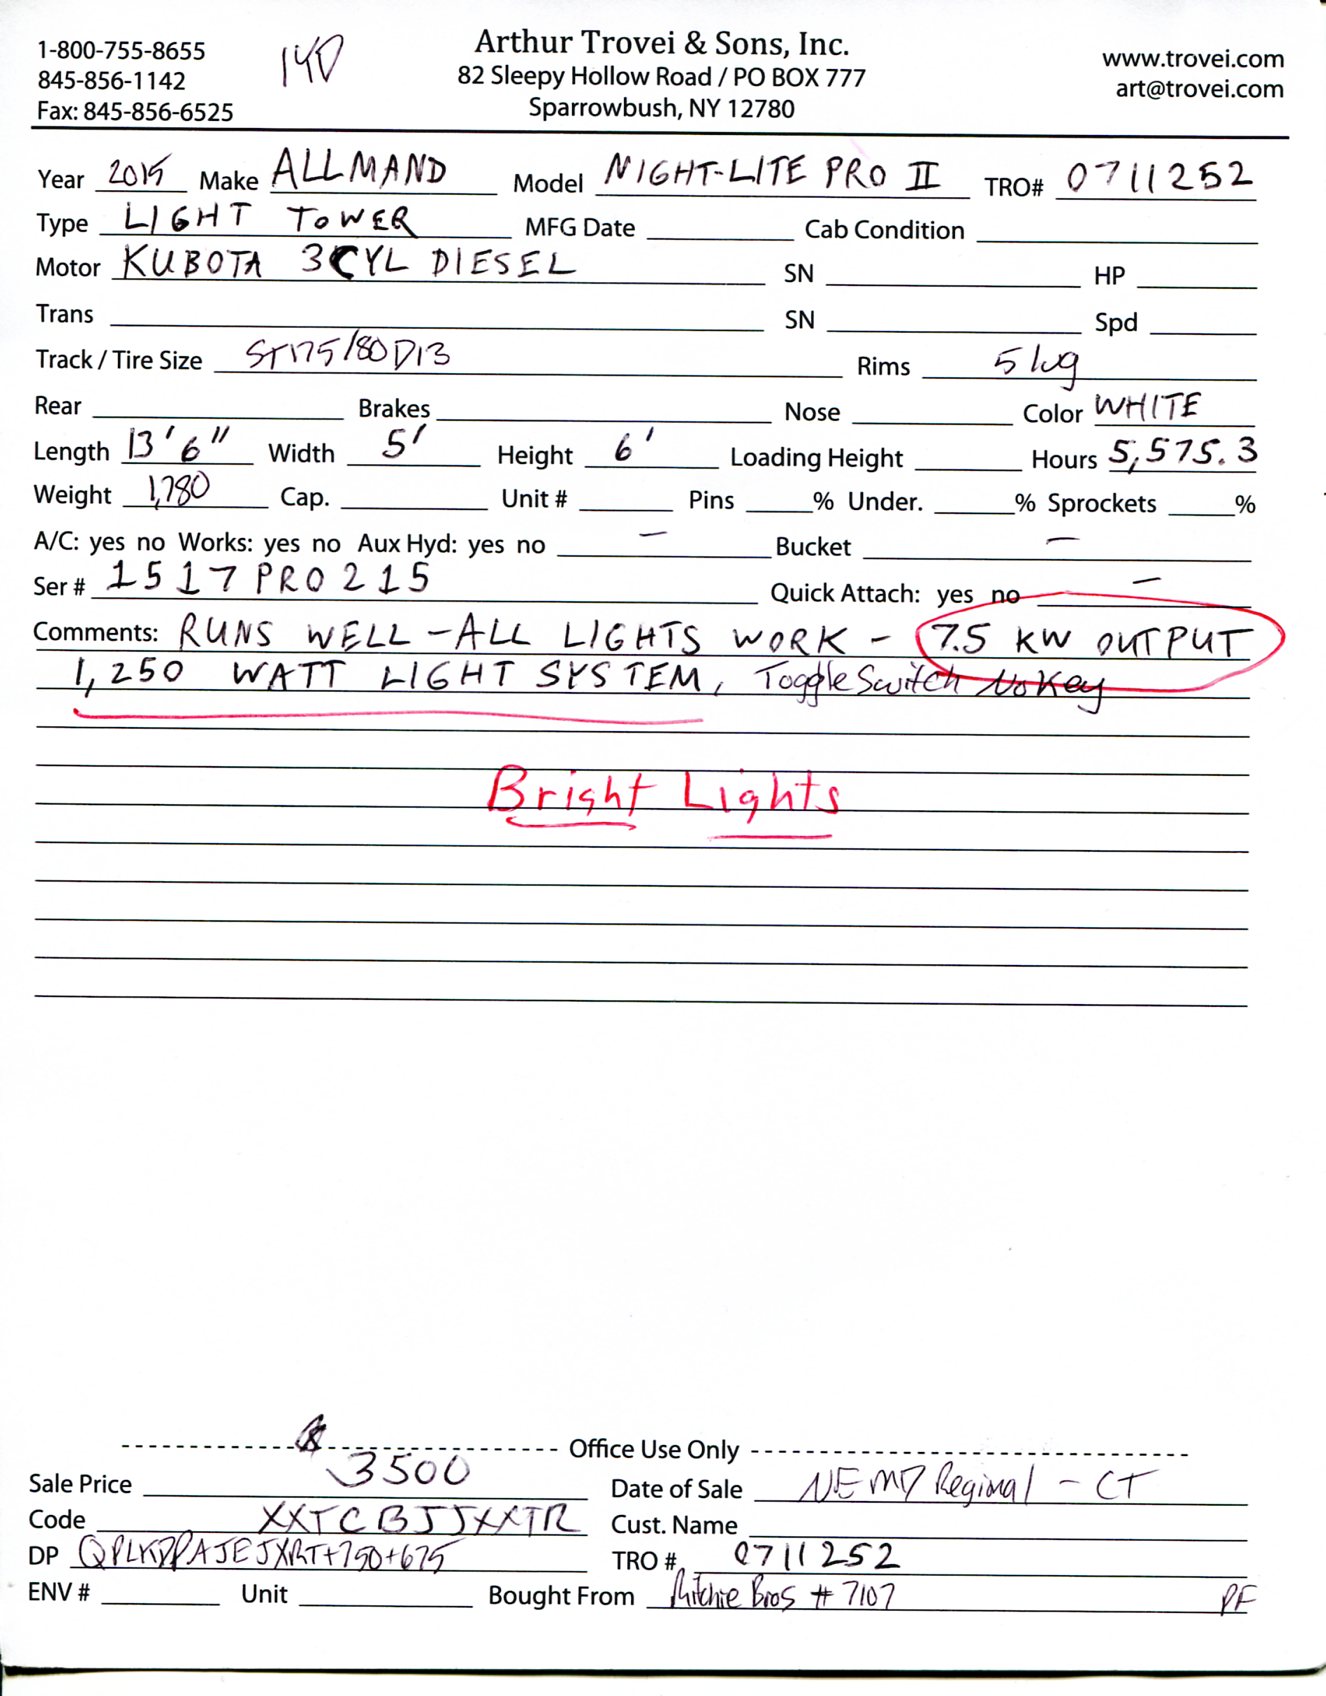 1-800-755-8655
845-856-1142
Fax: 845-856-6525
140
Arthur Trovei & Sons, Inc.
82 Sleepy Hollow Road / PO BOX 777
Sparrowbush, NY 12780
www.trovei.com
art@trovei.com
Year 2015 Make ALLMAND Model NIGHT-LITE PRO II TRO# 0711252
Type LIGHT TOWER MFG Date Cab Condition
Motor KUBOTA 3CYL DIESEL SN HP
Trans SN Spd
Track / Tire Size ST175/80D13 Rims 5 lug
Rear Brakes Nose Color WHITE
Length 13'6" Width 5' Height 6' Loading Height Hours 5,575.3
Weight 1,780 Cap. Unit # Pins % Under. % Sprockets %
A/C: yes no Works: yes no Aux Hyd: yes no — Bucket —
Ser # 1517PRO215 Quick Attach: yes no —
Comments: RUNS WELL - ALL LIGHTS WORK - 7.5 KW OUTPUT
1,250 WATT LIGHT SYSTEM, Toggle Switch No Key
Bright Lights
Office Use Only
Sale Price 3500 Date of Sale NEMD Reginal - CT
Code XXTCBJJXXTR Cust. Name
DP +750+675 TRO # 0711252
ENV # Unit Bought From Ritchie Bros # 7107 PF